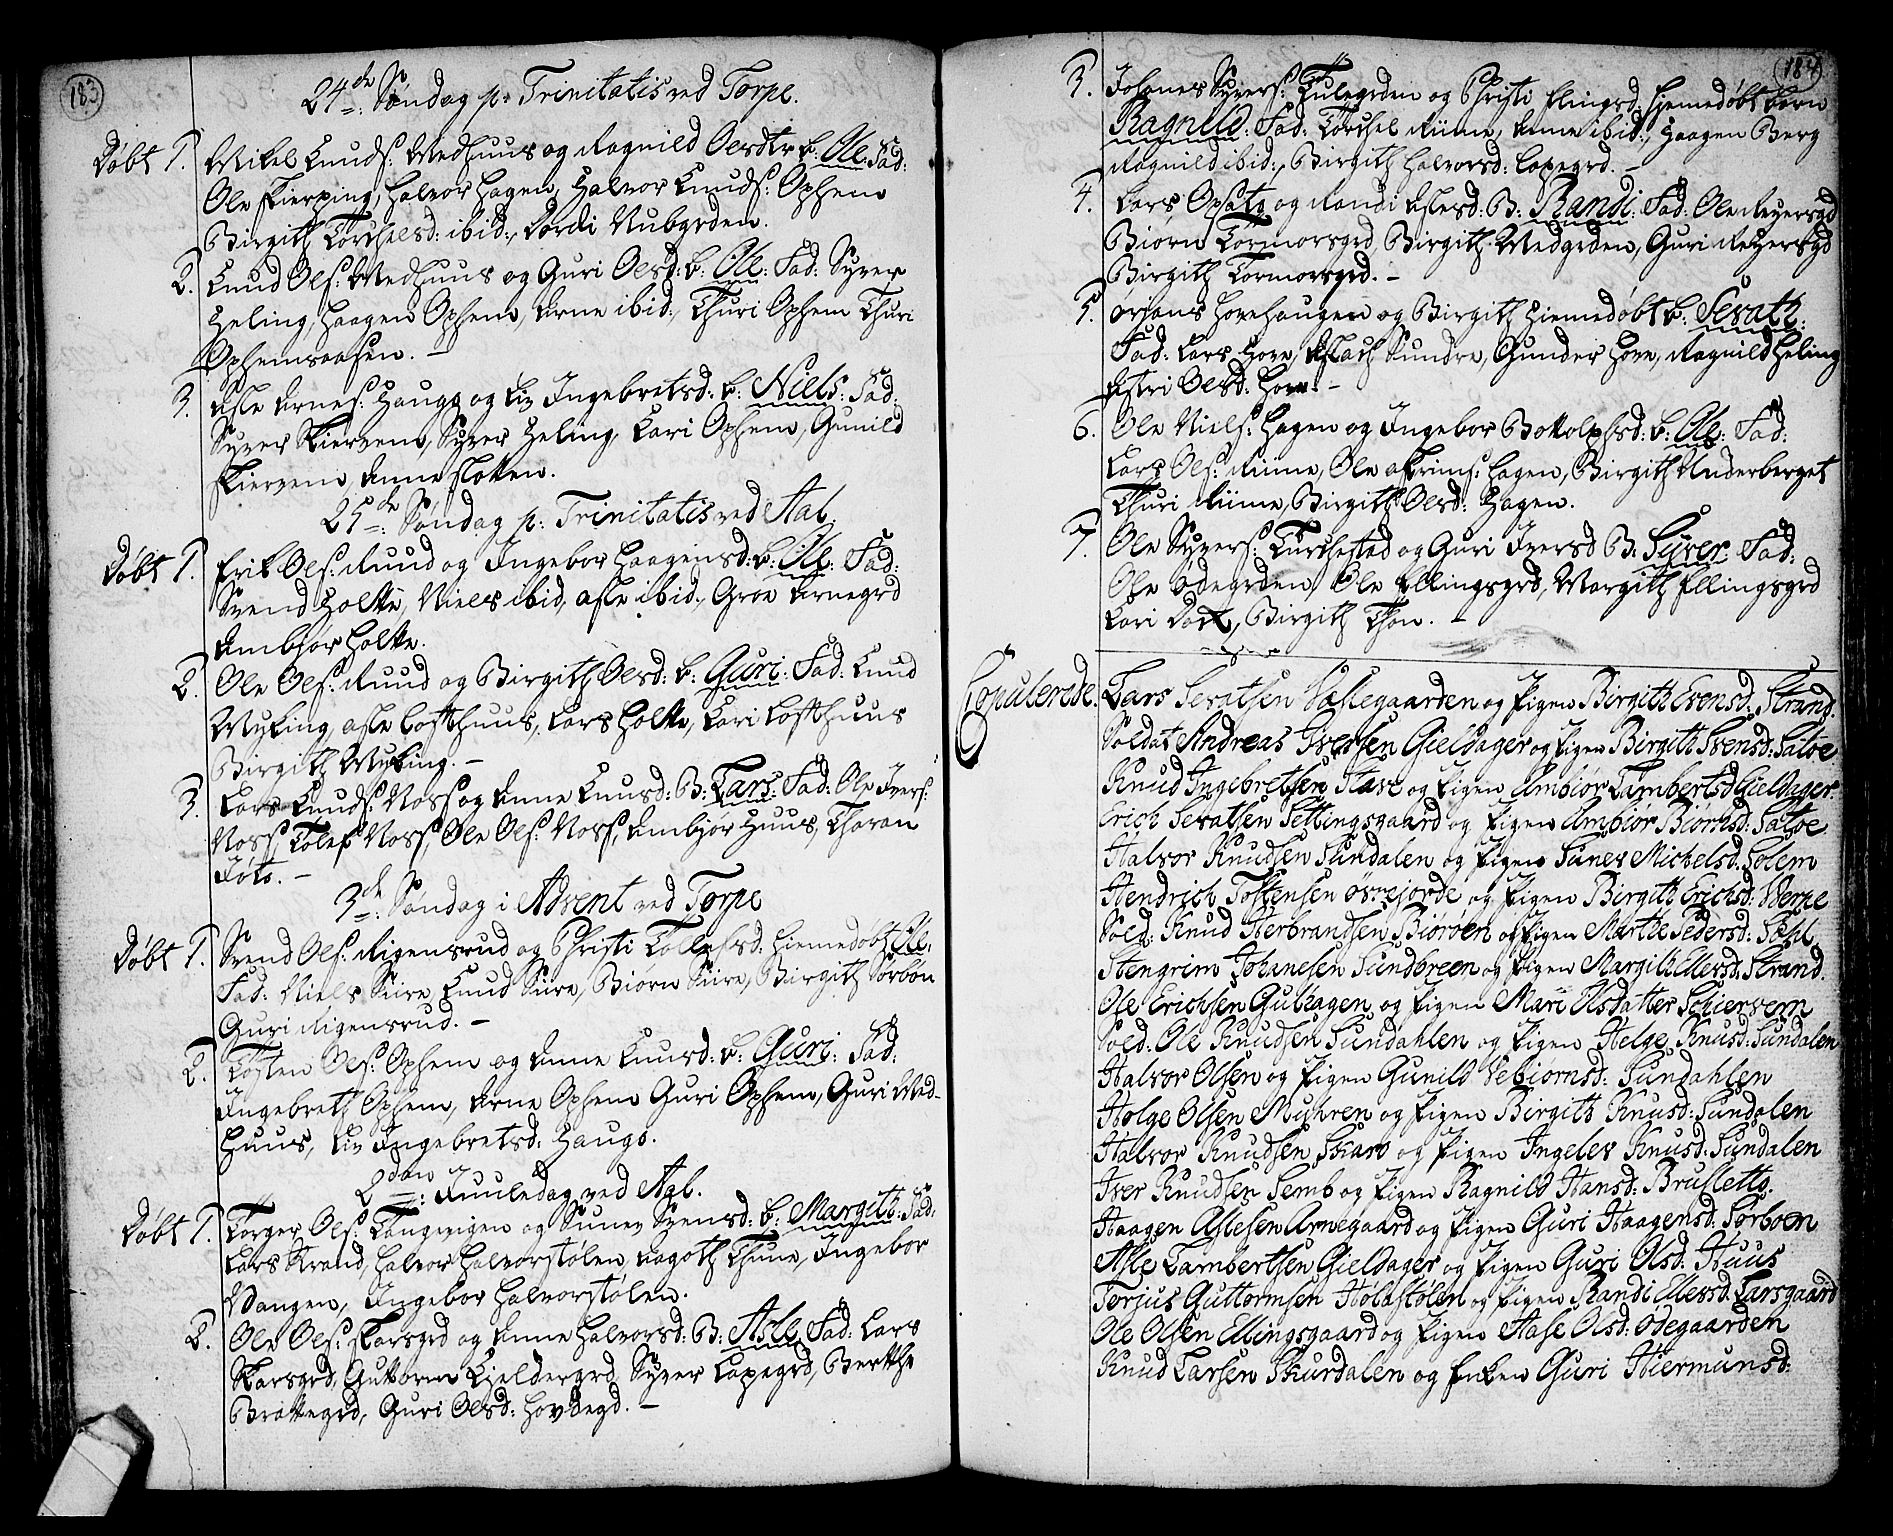 183
24de Søndag p. Trinitatis ved Torpe.
Døbt 1. Mikel Knuds: Medhuus og Ragnild Oesdtr b: Ole. Fad:
Ole Skierping, Halvor Hagen, Halvor Knuds: Ophem
Birgith Torchelsd: ibid:, Dordi Nubgrden.
2. Knud Ols: Medhuus og Guri Olsd: b: Ole: Fad: Syver
Heling, Haagen Ophem, Arne ibid:, Thuri Ophem Thuri
Ophemsaasen. —
3. Asle Arnes: Hauge og Liv Ingebretsd: b: Niels: Fad:
Syver Skiervem, Syver Heling, Kari Ophem, Gunild
Skiervem Anne Sloten.
25de: Søndag p: Trinitatis ved Aal
Døbt 1. Erik Ols: Ruud og Ingebor Haagensd: b: Ole: Fad:
Svend Holte, Niels ibid, Asle ibid:, Groe Arnegrd
Ambjor Holte.
2. Ole Ols: Ruud og Birgith Olsd: b: Guri: Fad: Knud
Myking, Asle Loftthuus, Lars Holte, Kari Loftthuus
Birgith Myking. —
3. Lars Knuds: Noss og Anne Knusd: B: Lars: Fad: Ole Ivers:
Noss, Tolef Noss, Ole Ols: Noss, Ambjør Huus, Tharan
Tøto. —
3de: Søndag i Advent ved Torpe
Døbt 1. Svend Ols: Rigensrud og Christi Tollefsd: Hiemedøbt Ole.
Fad: Niels Siire, Knud Siire, Biørn Siire, Birgith Sørbøn
Guri Rigensrud. —
2. Tosten Ols: Ophem og Anne Knusd: b: Guri: Fad:
Ingebreth Ophem, Arne Ophem Guri Ophem, Guri Med-
huus, Liv Ingebretsd: Haugo.
2den: Juuledag ved Aal.
Døbt 1. Torger Ols: Tingvigen og Sunev Svensd: b: Margith: Fad:
Lars Strand, Halvor Halvorstølen, Aagoth Thune, Ingebor
Vangen, Ingebor Halvorstølen.
2. Ole Ols: Skarsgrd og Anne Halvorsd: B: Asle Fad: Lars
Skarsgrd, Guttorm Kieldergrd, Syver Lapegrd, Berthe
Brattegrd, Guri Olsd: Hovdegd. —
184
3. Johanes Syvers: Tulegrden og Christi Elingsd: Hjemedøbt barn
Ragnild. Fad: Torchel Riime, Anne ibid:, Haagen Berg
Ragnild ibid:, Birgith Halvorsd: Lapegrd. —
4. Lars Opsato og Randi Aslesd: B: Randi: Fad: Ole Reyersgd
Biørn Tormorsgrd, Birgith Medgrden, Guri Reyersgd
Birgith Tormorsgrd. —
5. Ørjans Hovehaugen og Birgith Hiemedøbt b: Sevath:
Fad: Lars Hove, Aslach Sundre, Gunder Hove, Ragnild Heling
Astri Olsd: Hove. —
6. Ole Niels: Hagen og Ingebor Bottolphsd: b: Ole: Fad:
Lars Ols: Riime, Ole Askrims: Hagen, Birgith Underberget
Thuri Riime, Birgith Olsd: Hagen.
7. Ole Syvers: Turchestad og Guri Iversd B: Syver: Fad:
Ole Ødegrden, Ole Ellingsgrd, Margith Ellingsgrd
Kari Dock, Birgith Thon. —
Copulerede. Lars Sevatsen Vaslegaarden og Pigen Birgith Evensd: Strand.
Soldat Andreas Iversen Gieldager og Pigen Birgith Svensd: Satve
Knud Ingebretsen Stave og Pigen Ambiør Lambertsd Gieldager.
Erich Sevatsen Settingsgaard og Pigen Ambiør Biørnsd: Satve
Halvor Knudsen Sundalen og Pigen Sunev Michelsd. Solem
Hendrich Tostensen Øvrejorde og Pigen Birgith Erichsd: Verpe
Sold: Knud Herbrandsen Biørøen og Pigen Marthe Pedersd: Sahl
Stengrim Johanesen Sundbreen og Pigen Margith Ellevsd: Strand.
Ole Erichsen Gulhagen og Pigen Mari Olsdatter Schiervem
Sold. Ole Knudsen Sundahlen og Pigen Helge Knusd: Sundalen
Halvor Olsen og Pigen Gunild Vebiørnsd: Sundahlen
Holge Olsen Myhren og Pigen Birgith Knusd: Sundalen
Halvor Knudsen Skaro og Pigen Ingelev Knusd: Sundalen
Iver Knudsen Semb og Pigen Ragnild Hansd: Brusletto.
Haagen Aslesen Arnegaard og Pigen Guri Haagensd. Sørboen
Asle Lambertsen Gieldager og Pigen Guri Olsd: Huus
Torjus Guttormsen Holdstølen og Pigen Randi Ellevsd. Larsgaard
Ole Olsen Ellingsgaard og Pigen Aase Olsd: Ødegaarden
Knud Larsen Skurdalen og Enken Guri Hiermunsd: